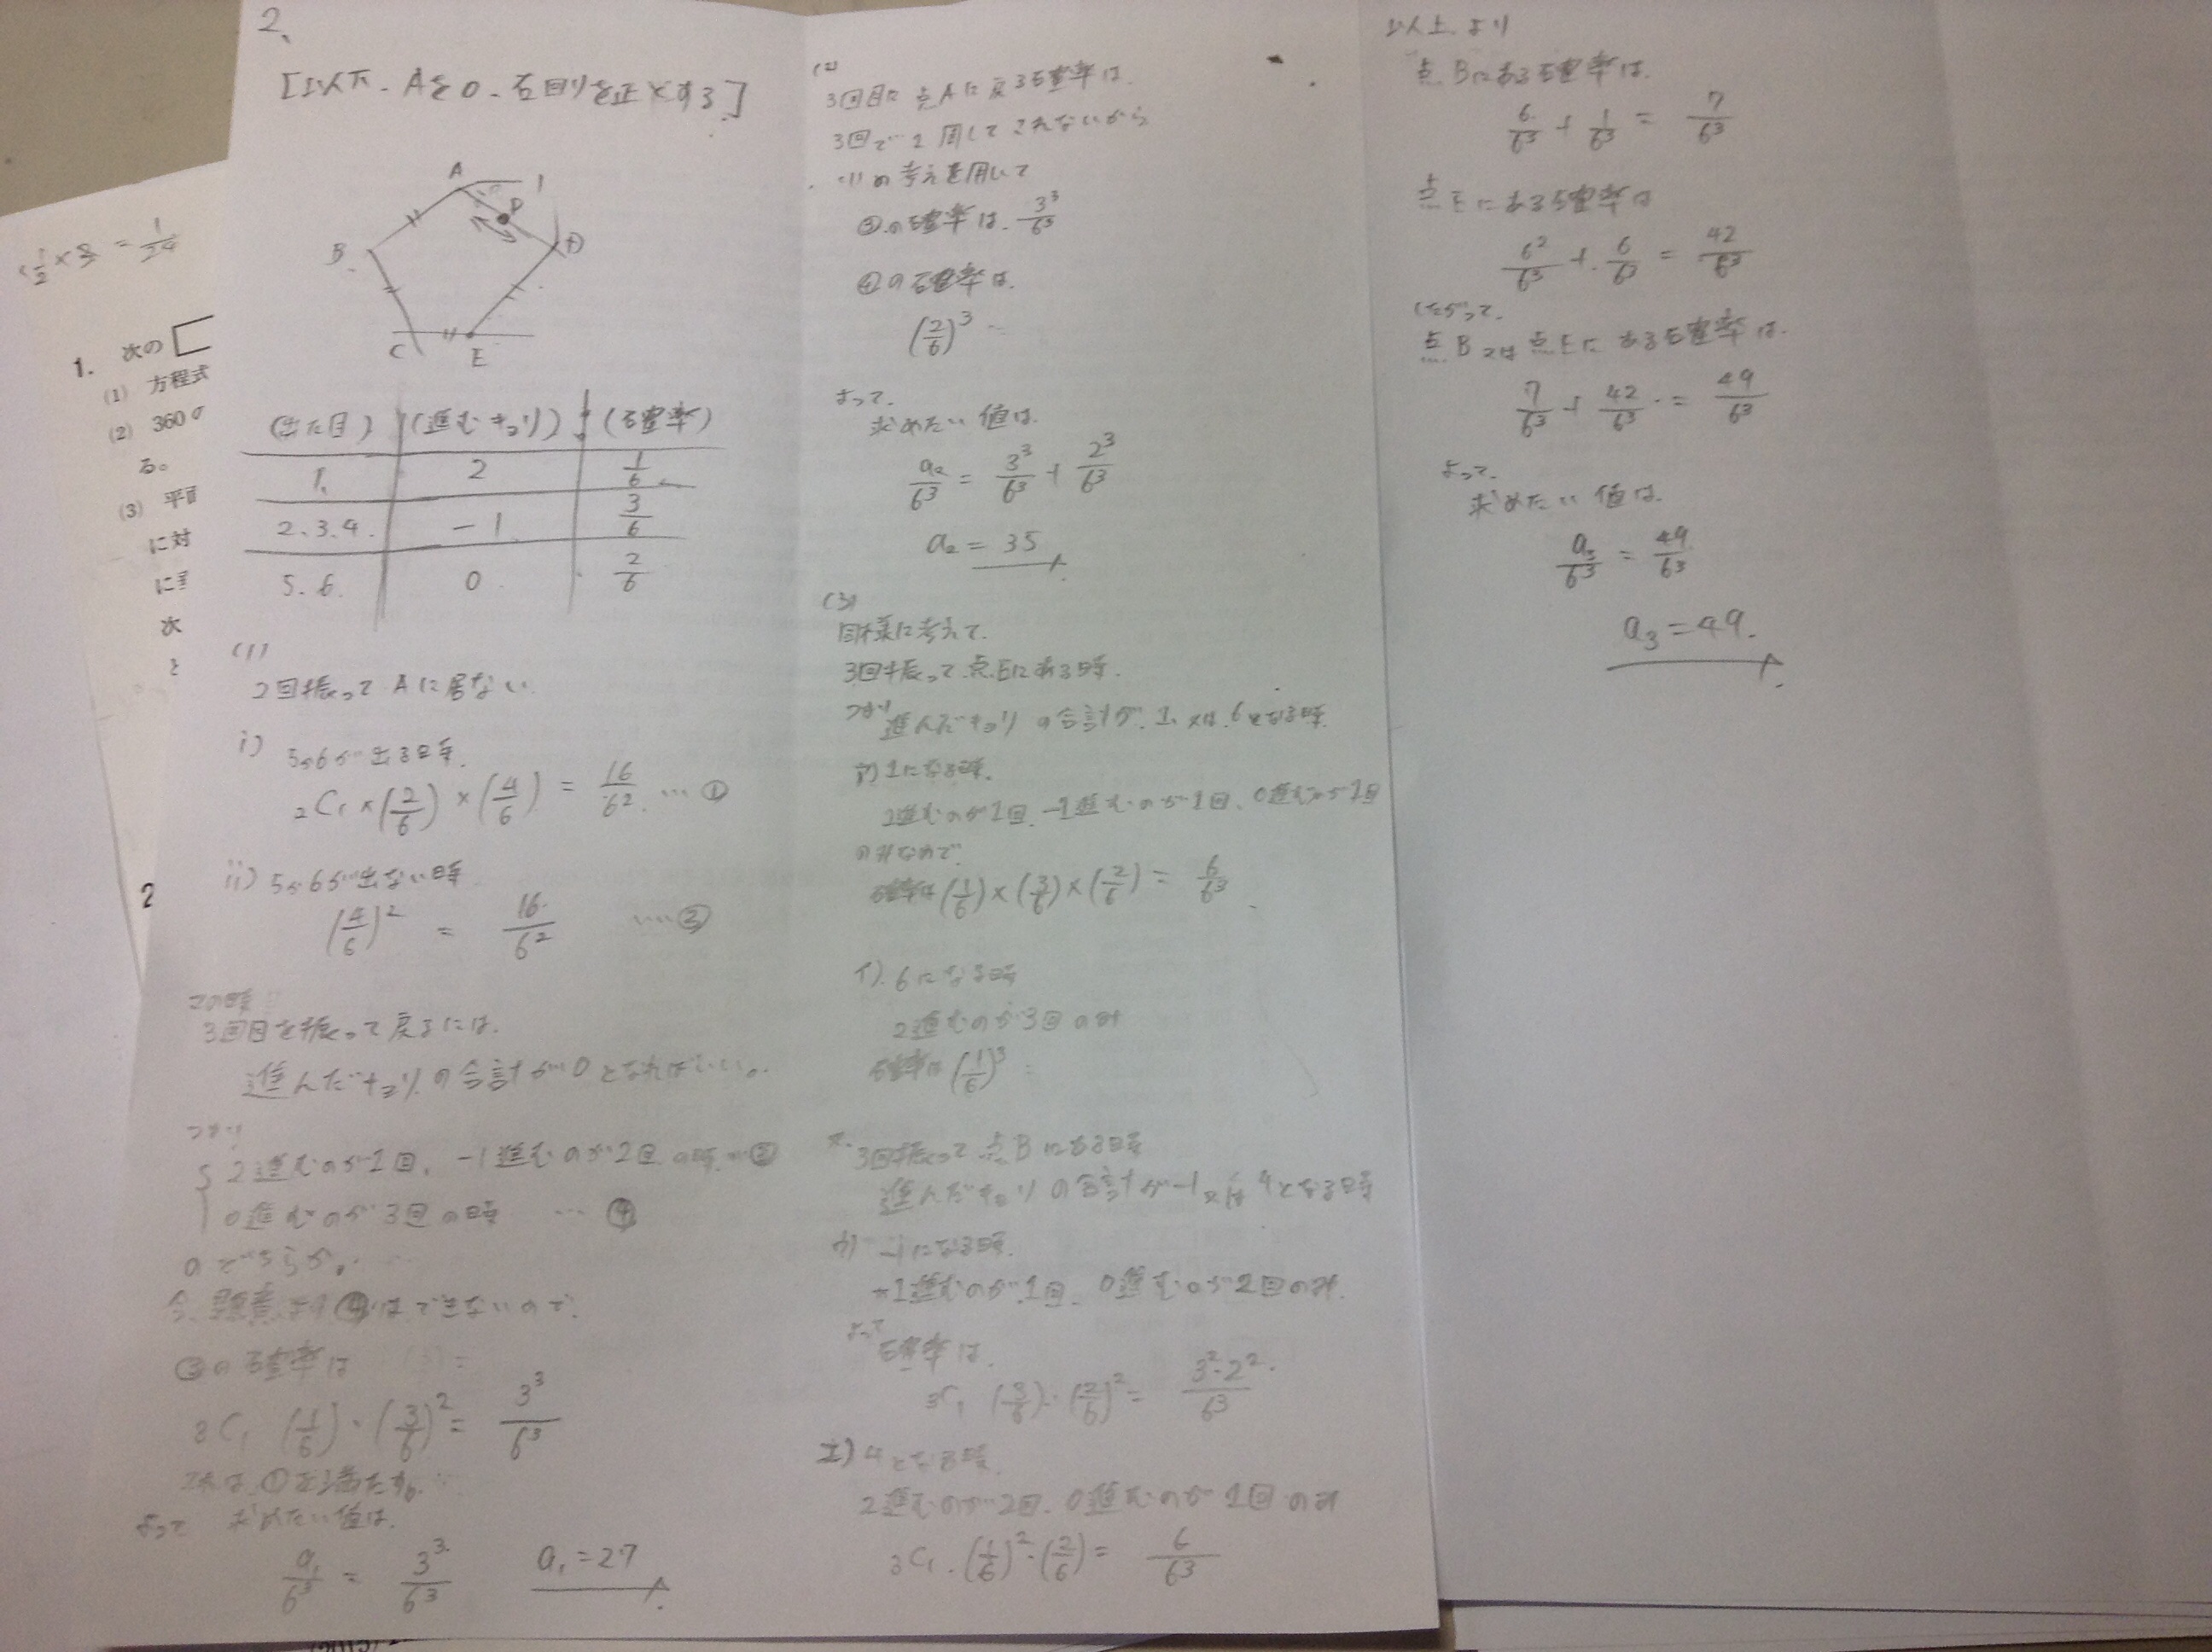 2、
[以下、Aを0、右回りを正とする]
A
1
P
B
D
C
E
(出た目) (進むキョリ) (確率)
1. 2 1/6
2.3.4. -1 3/6
5.6. 0 2/6
(1)
2回振って Aに居ない
i) 5か6が出る時.
₂C₁×(2/6)×(4/6) = 16/6² …①
ii) 5か6が出ない時
(4/6)² = 16/6² …②
この時
3回目を振って戻るには.
進んだキョリの合計が0となればいい。
つまり
{ 2進むのが1回、-1進むのが2回の時…③
0進むのが3回の時 …④
のどちらか。
今、題意より④はできないので.
③の確率は
₃C₁ (1/6)・(3/6)² = 3³/6³
これは、①を満たす。
よって 求めたい値は.
a₁/6³ = 3³/6³ a₁=27
(2)
3回目に点Aに戻る確率は.
3回で 2周してこれないから
(1)の考えを用いて
③の確率は. 3³/6³
④の確率は.
(2/6)³
よって.
求めたい値は.
a₂/6³ = 3³/6³ + 2³/6³
a₂ = 35
(3)
同様に考えて.
3回振って点Eにある時.
つまり進んだキョリの合計が.1、又は.6となる時.
ア) 1になる時.
2進むのが1回、-1進むのが1回、0進むのが1回
のみなので
確率は(1/6)×(3/6)×(2/6) = 6/6³
イ). 6になる時
2進むのが3回のみ
確率は(1/6)³
又.3回振って点Bにある時
進んだキョリの合計が-1又は4となる時
ウ) -1になる時.
-1進むのが1回、0進むのが2回のみ.
よって
確率は.
₃C₁ (3/6)・(2/6)² = 3²・2²/6³
エ) 4となる時.
2進むのが2回、0進むのが1回のみ
₃C₁・(1/6)²・(2/6) = 6/6³
以上より
点Bにある確率は.
6/6³ + 1/6³ = 7/6³
点Eにある確率は
6²/6³ + 6/6³ = 42/6³
したがって.
点B又は点Eにある確率は.
7/6³ + 42/6³ = 49/6³
よって.
求めたい値は.
a₃/6³ = 49/6³
a₃=49.
= 1/24
1. 次の
(1) 方程式
(2) 360
る。
(3) 平面
に対
に
次
と
2